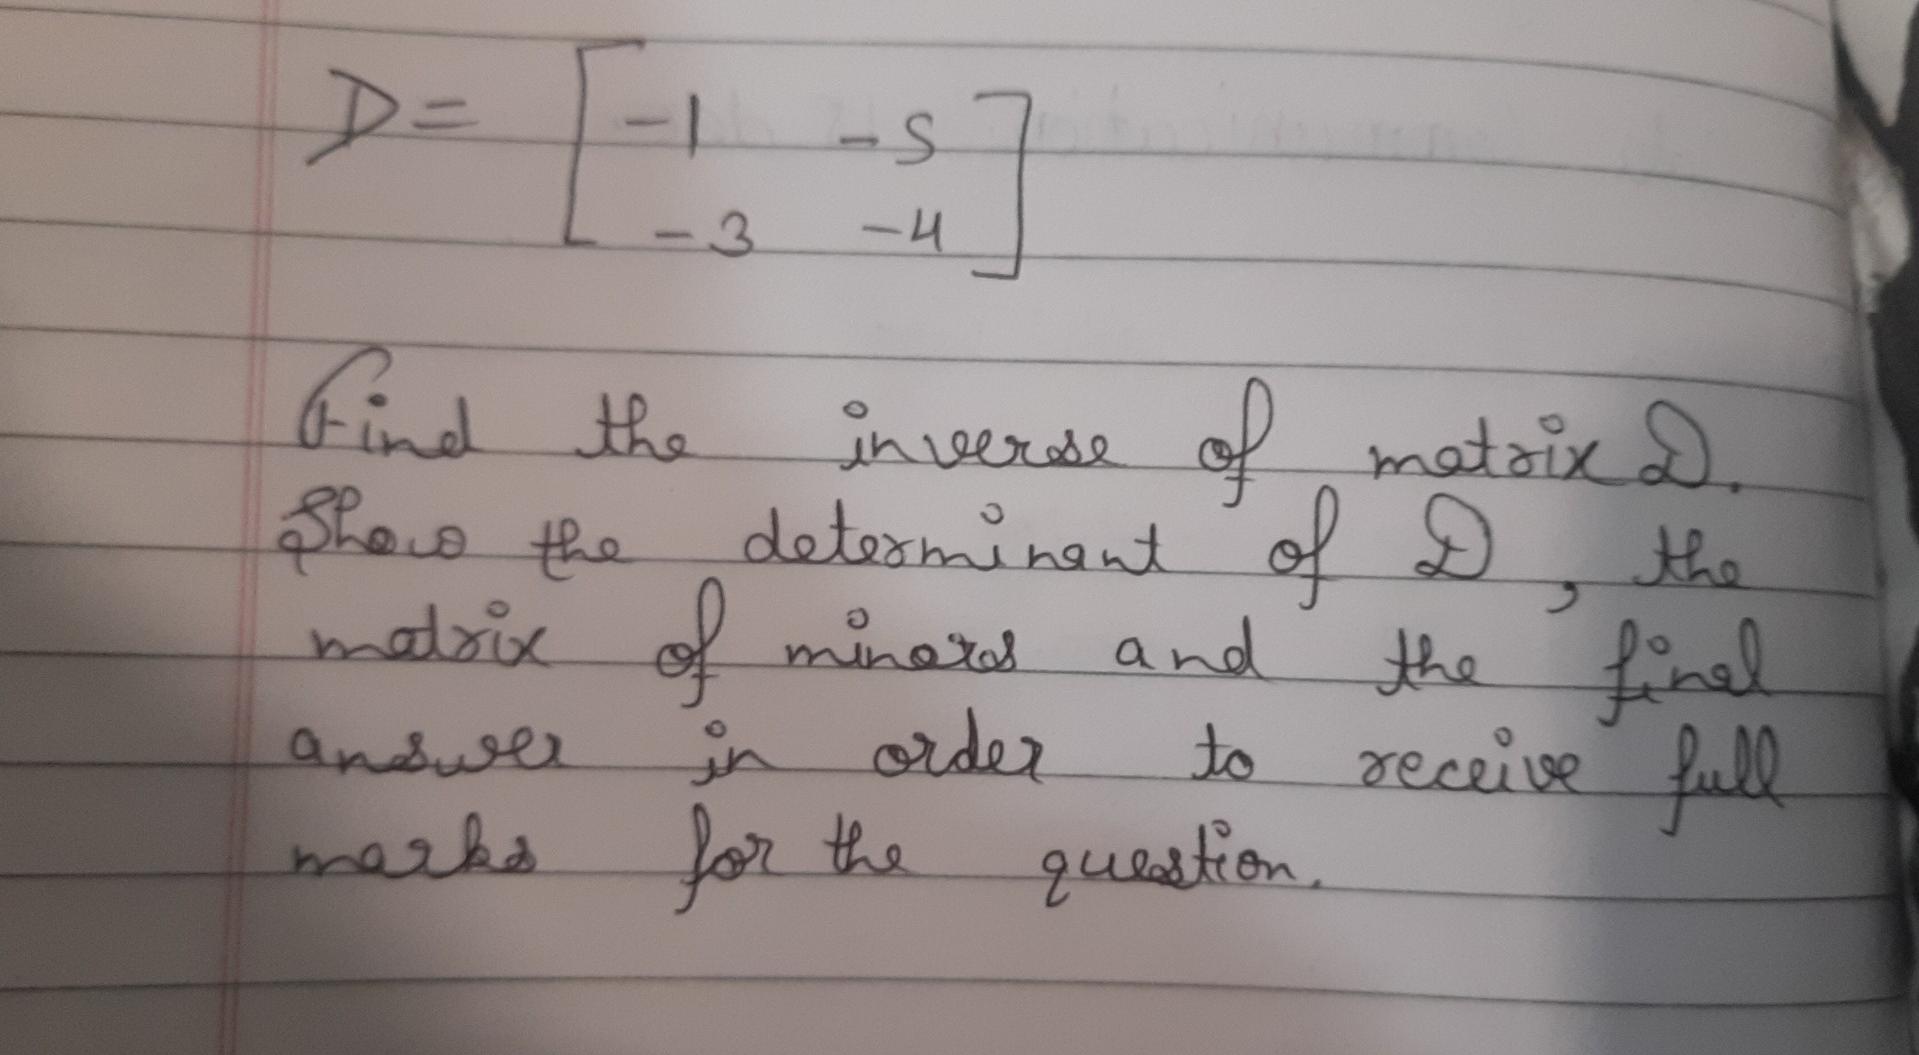 D = [ -1 -5
-3 -4 ]
Find the inverse of matrix D.
Show the determinant of D, the
matrix of minors and the final
answer in order to receive full
marks for the question.